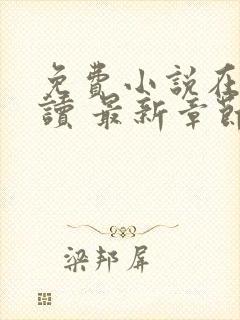 免費小說在
讀 最新章節
梁邦屏